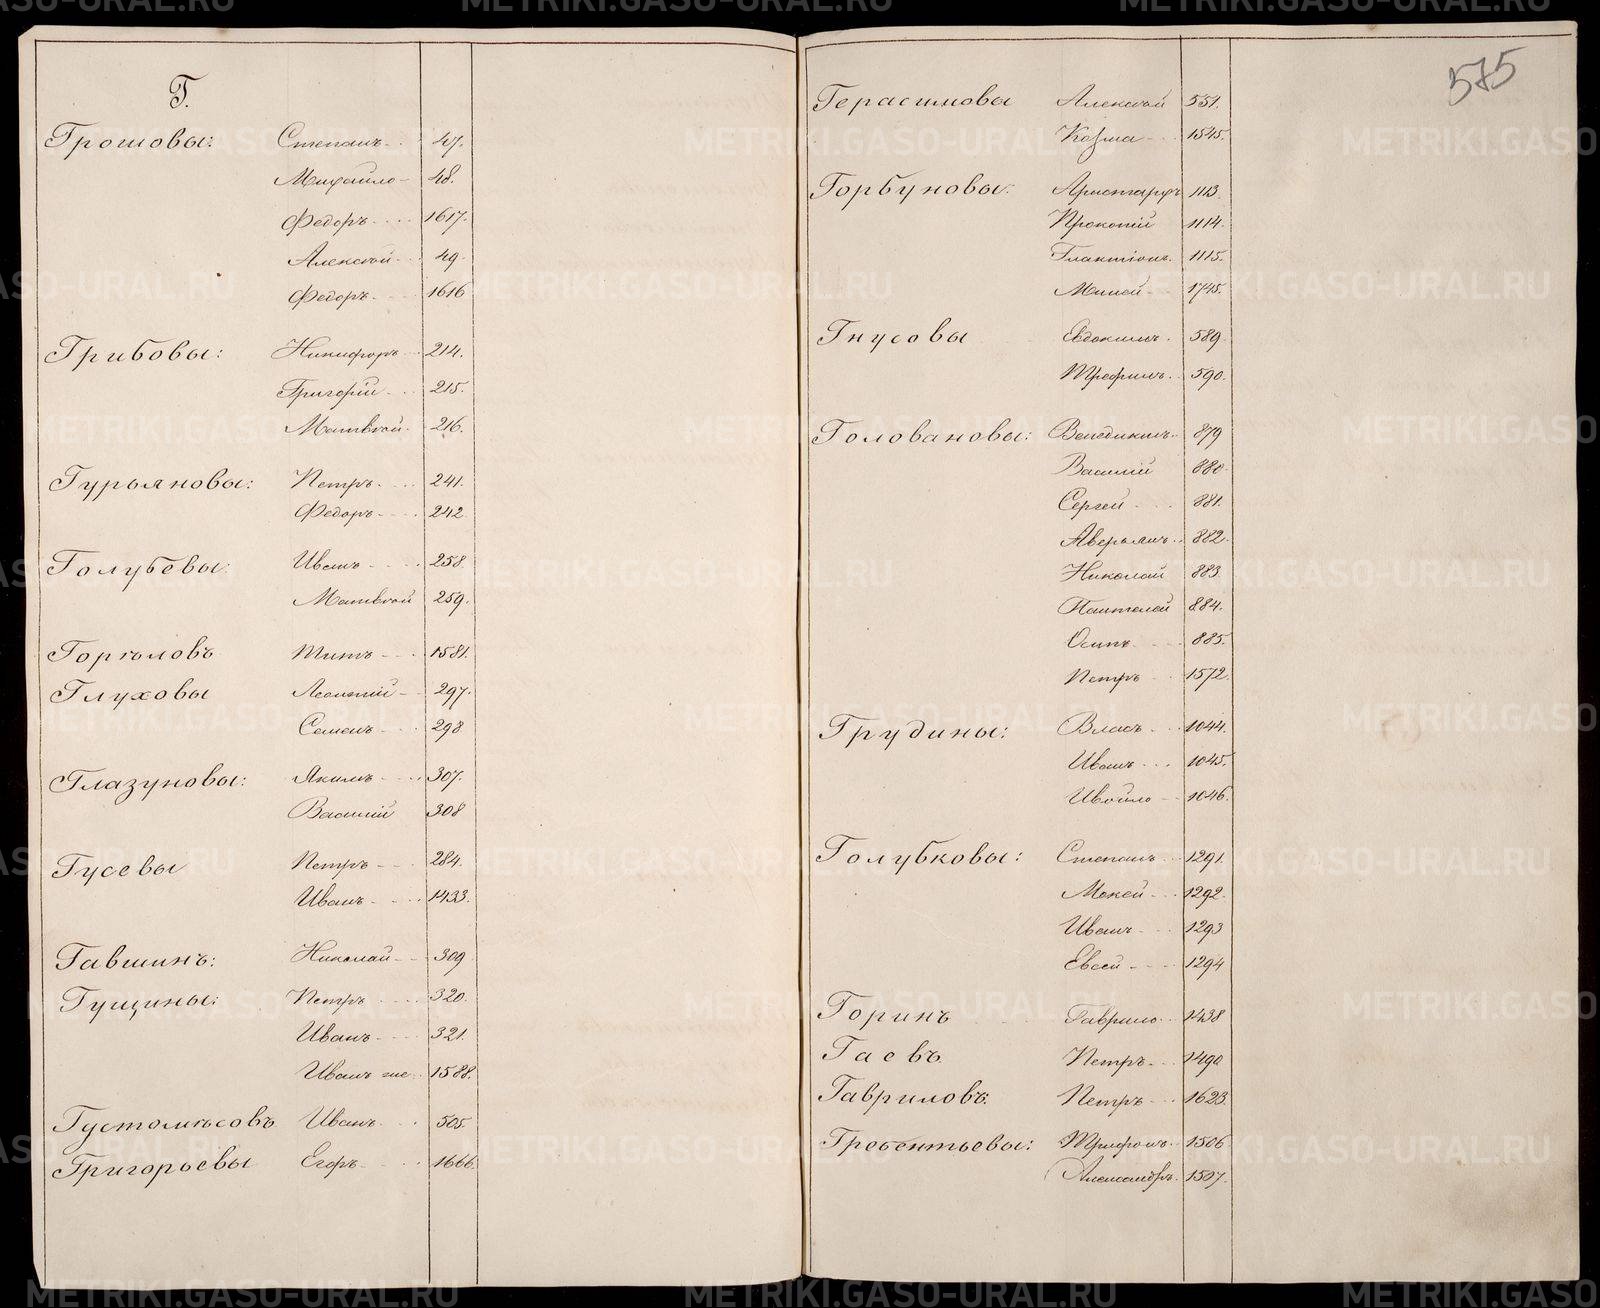 Г.
Грошовы: Степанъ 47.
Михайло 48.
Федоръ 1617.
Алексѣй 49.
Федоръ 1616
Грибовы: Никифоръ 214.
Григорій 215.
Матвѣй 216.
Гурьяновы: Петръ 241.
Федоръ 242.
Голубевы: Иванъ 258.
Матвѣй 259.
Горѣловъ Титъ 1581.
Глуховы Леонтій 297.
Семенъ 298
Глазуновы: Якимъ 307.
Василій 308
Гусевы Петръ 284.
Иванъ 1433.
Гавшинъ: Николай 309
Гущины: Петръ 320.
Иванъ 321.
Иванъ же 1588.
Густомѣсовъ Иванъ 505.
Григорьевы Егоръ 1666.
575
Герасимовы Алексѣй 551.
Козма 1545.
Горбуновы: Аристархъ 1113.
Прокопій 1114.
Галактіонъ 1115.
Миней 1745.
Гнусовы Евдокимъ 589
Трефилъ 590.
Головановы: Венедиктъ 879
Василій 880
Сергей 881.
Аверьянъ 882.
Николай 883
Пантелей 884.
Осипъ 885.
Петръ 1572.
Грудины: Власъ 1044.
Иванъ 1045.
Ивойло 1046.
Голубковы: Степанъ 1291.
Мокей 1292.
Иванъ 1293
Евсей 1294
Горинъ Гаврило 1438
Гаевъ Петръ 1490
Гавриловъ: Петръ 1623.
Гребентьевы: Трифонъ 1506
Александръ 1507.
METRIKI.GASO-URAL.RU